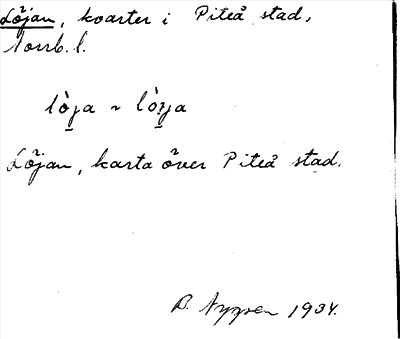 Löjan, kvarter i Piteå stad,
Norrb. l.
lò̱ja ~ lò̱ja
Löjan, karta över Piteå stad.
1934.